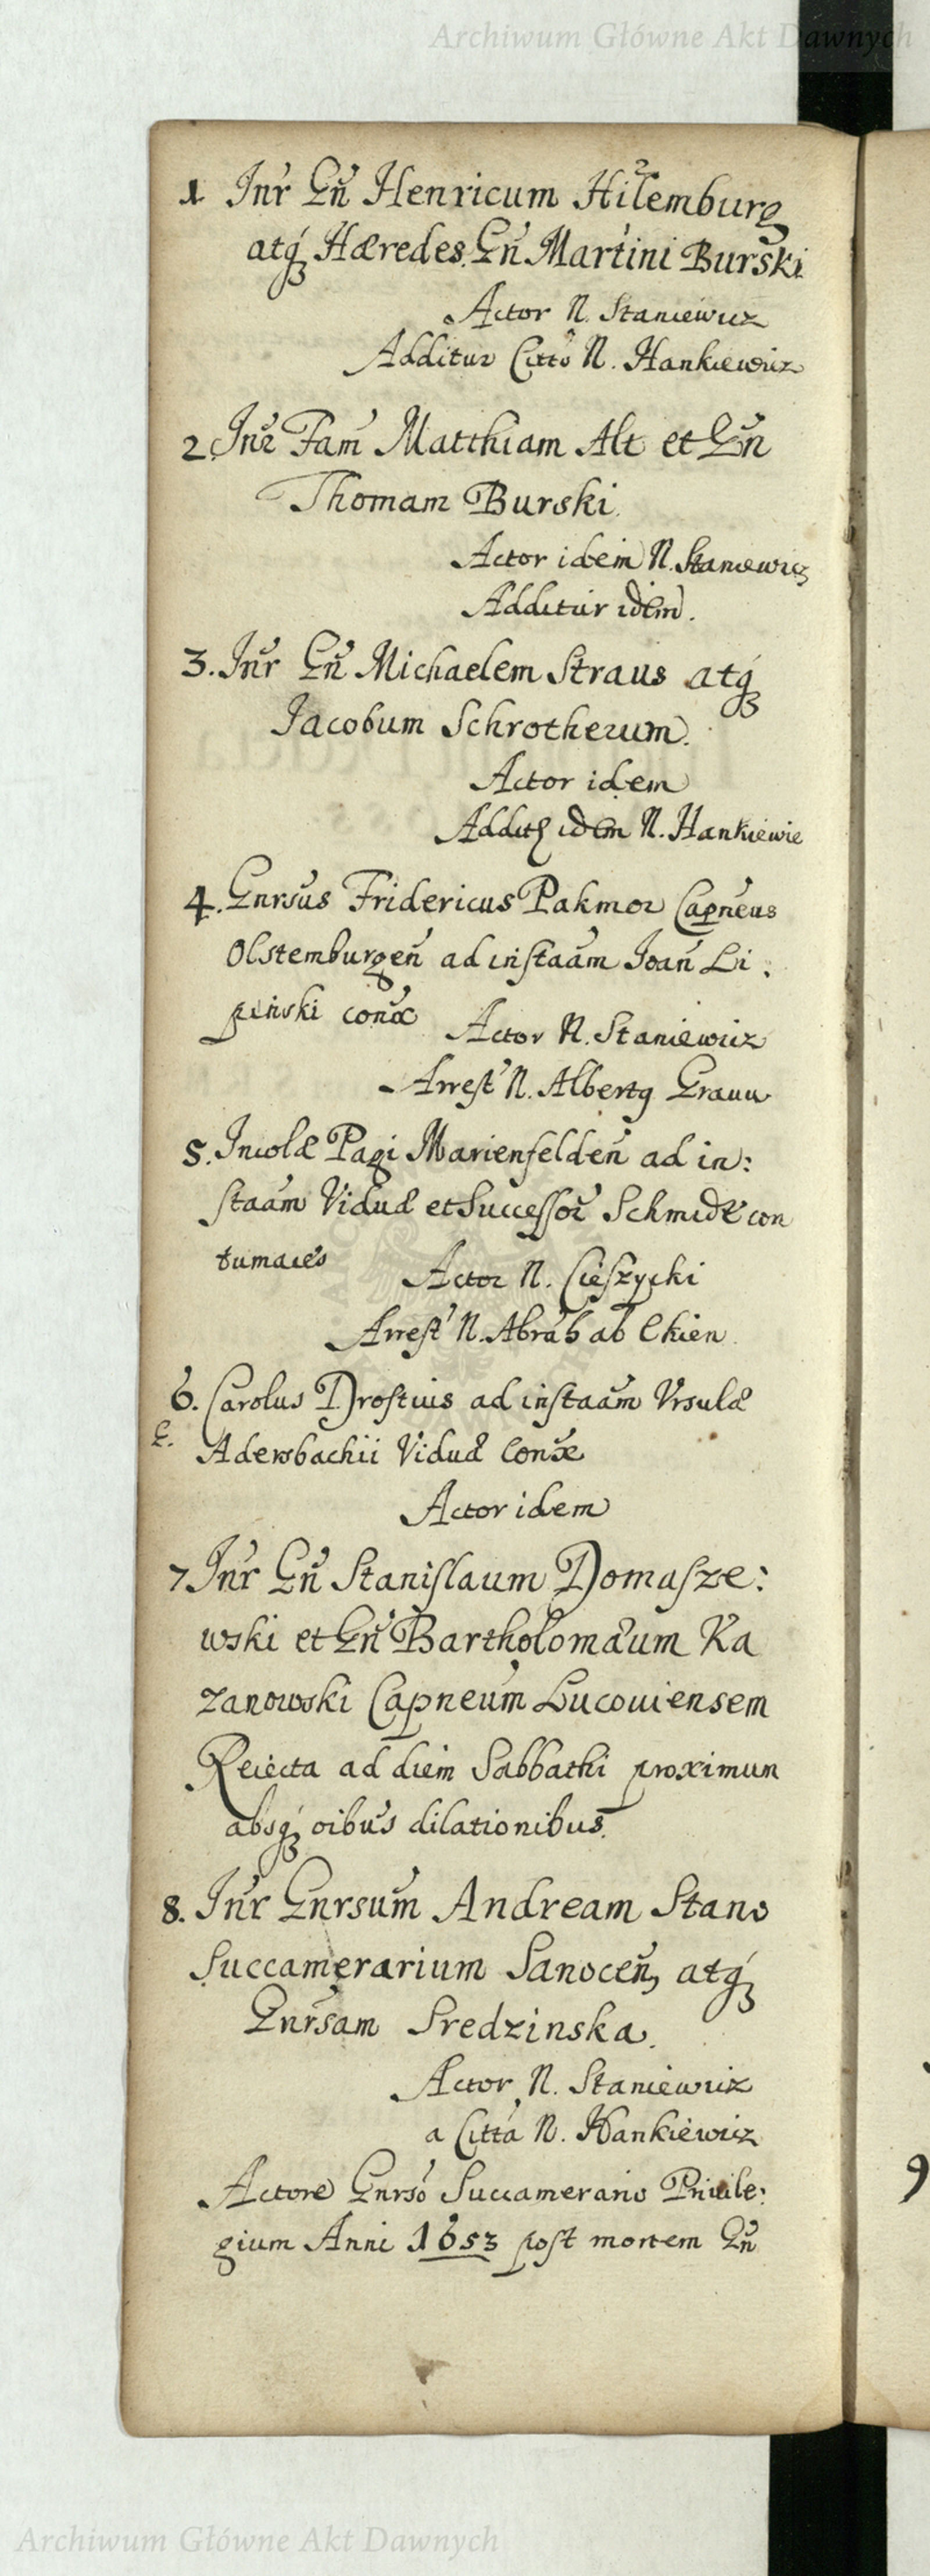 Archiwum Główne Akt Dawnych
1 Inr Gn̄ Henricum Hilemburg
atq́ꝫ Hæredes Gn̄ Martini Burski
Actor N. Staniewicz
Additur Citto N. Hankiewicz
2 Inr Fam Matthiam Alt et Gn̄
Thomam Burski.
Actor idem N. Staniewicz
Additur idem.
3. Inr Gn̄ Michaelem Straus atq́ꝫ
Iacobum Schrotherum.
Actor idem
Addit idem N. Hankiewic
4. Gnrsus Fridericus Pakmor Capneus
Olstemburgen̄ ad instaām Ioan̄ Li:
pinski
Actor N. Staniewicz
Arrest N. Albertꝯ Grauu
5. Incolæ Pagi Marienfelden̄ ad in:
staām Viduæ et Successor̄ Schmidt con
tumaces
Actor N. Cieszycki
Arrest N. Abrah ab Ekien
6. Carolus Drostius ad instaām Vrsulæ
Adersbachii Viduæ
Actor idem
7 Inr Gn̄ Stanislaum Domasze:
wski et Gn̄ Bartholomæum Ka
zanowski Capneum Lucouiensem
Reiecta ad diem Sabbathi proximum
absq́ꝫ oibus dilationibus.
8. Inr Gnrsum Andream Stano
Succamerarium Sanocen̄, atq́ꝫ
Gnrsam Sredzinska.
Actor N. Staniewicz
a Citta N. Hankiewicz
Actore Gnrso Succamerario Priuile:
gium Anni 1653 post mortem Gn̄
9
Archiwum Główne Akt Dawnych